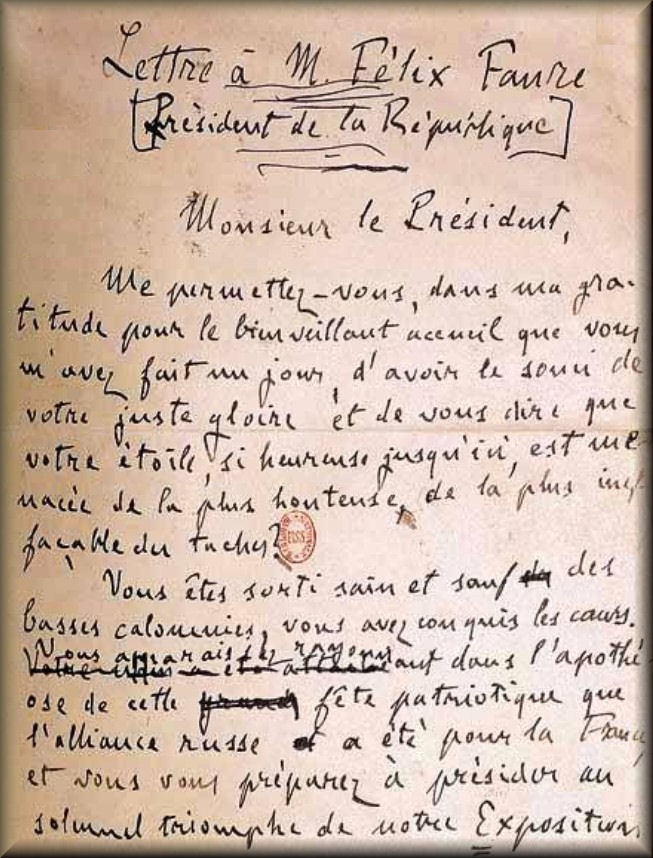 Lettre à M. Félix Faure
[Président de la République]
Monsieur le Président,
Me permettez-vous, dans ma gra-
titude pour le bienveillant accueil que vous
m'avez fait un jour, d'avoir le souci de
votre juste gloire et de vous dire que
votre étoile, si heureuse jusqu'ici, est me-
nacée de la plus honteuse, de la plus inef-
façable des taches?
Vous êtes sorti sain et sauf des
basses calomnies, vous avez conquis les cœurs.
Vous apparaissez rayonn
ant dans l'apothé-
ose de cette fête patriotique que
l'alliance russe a été pour la France,
et vous vous préparez à présider au
solennel triomphe de notre Exposition